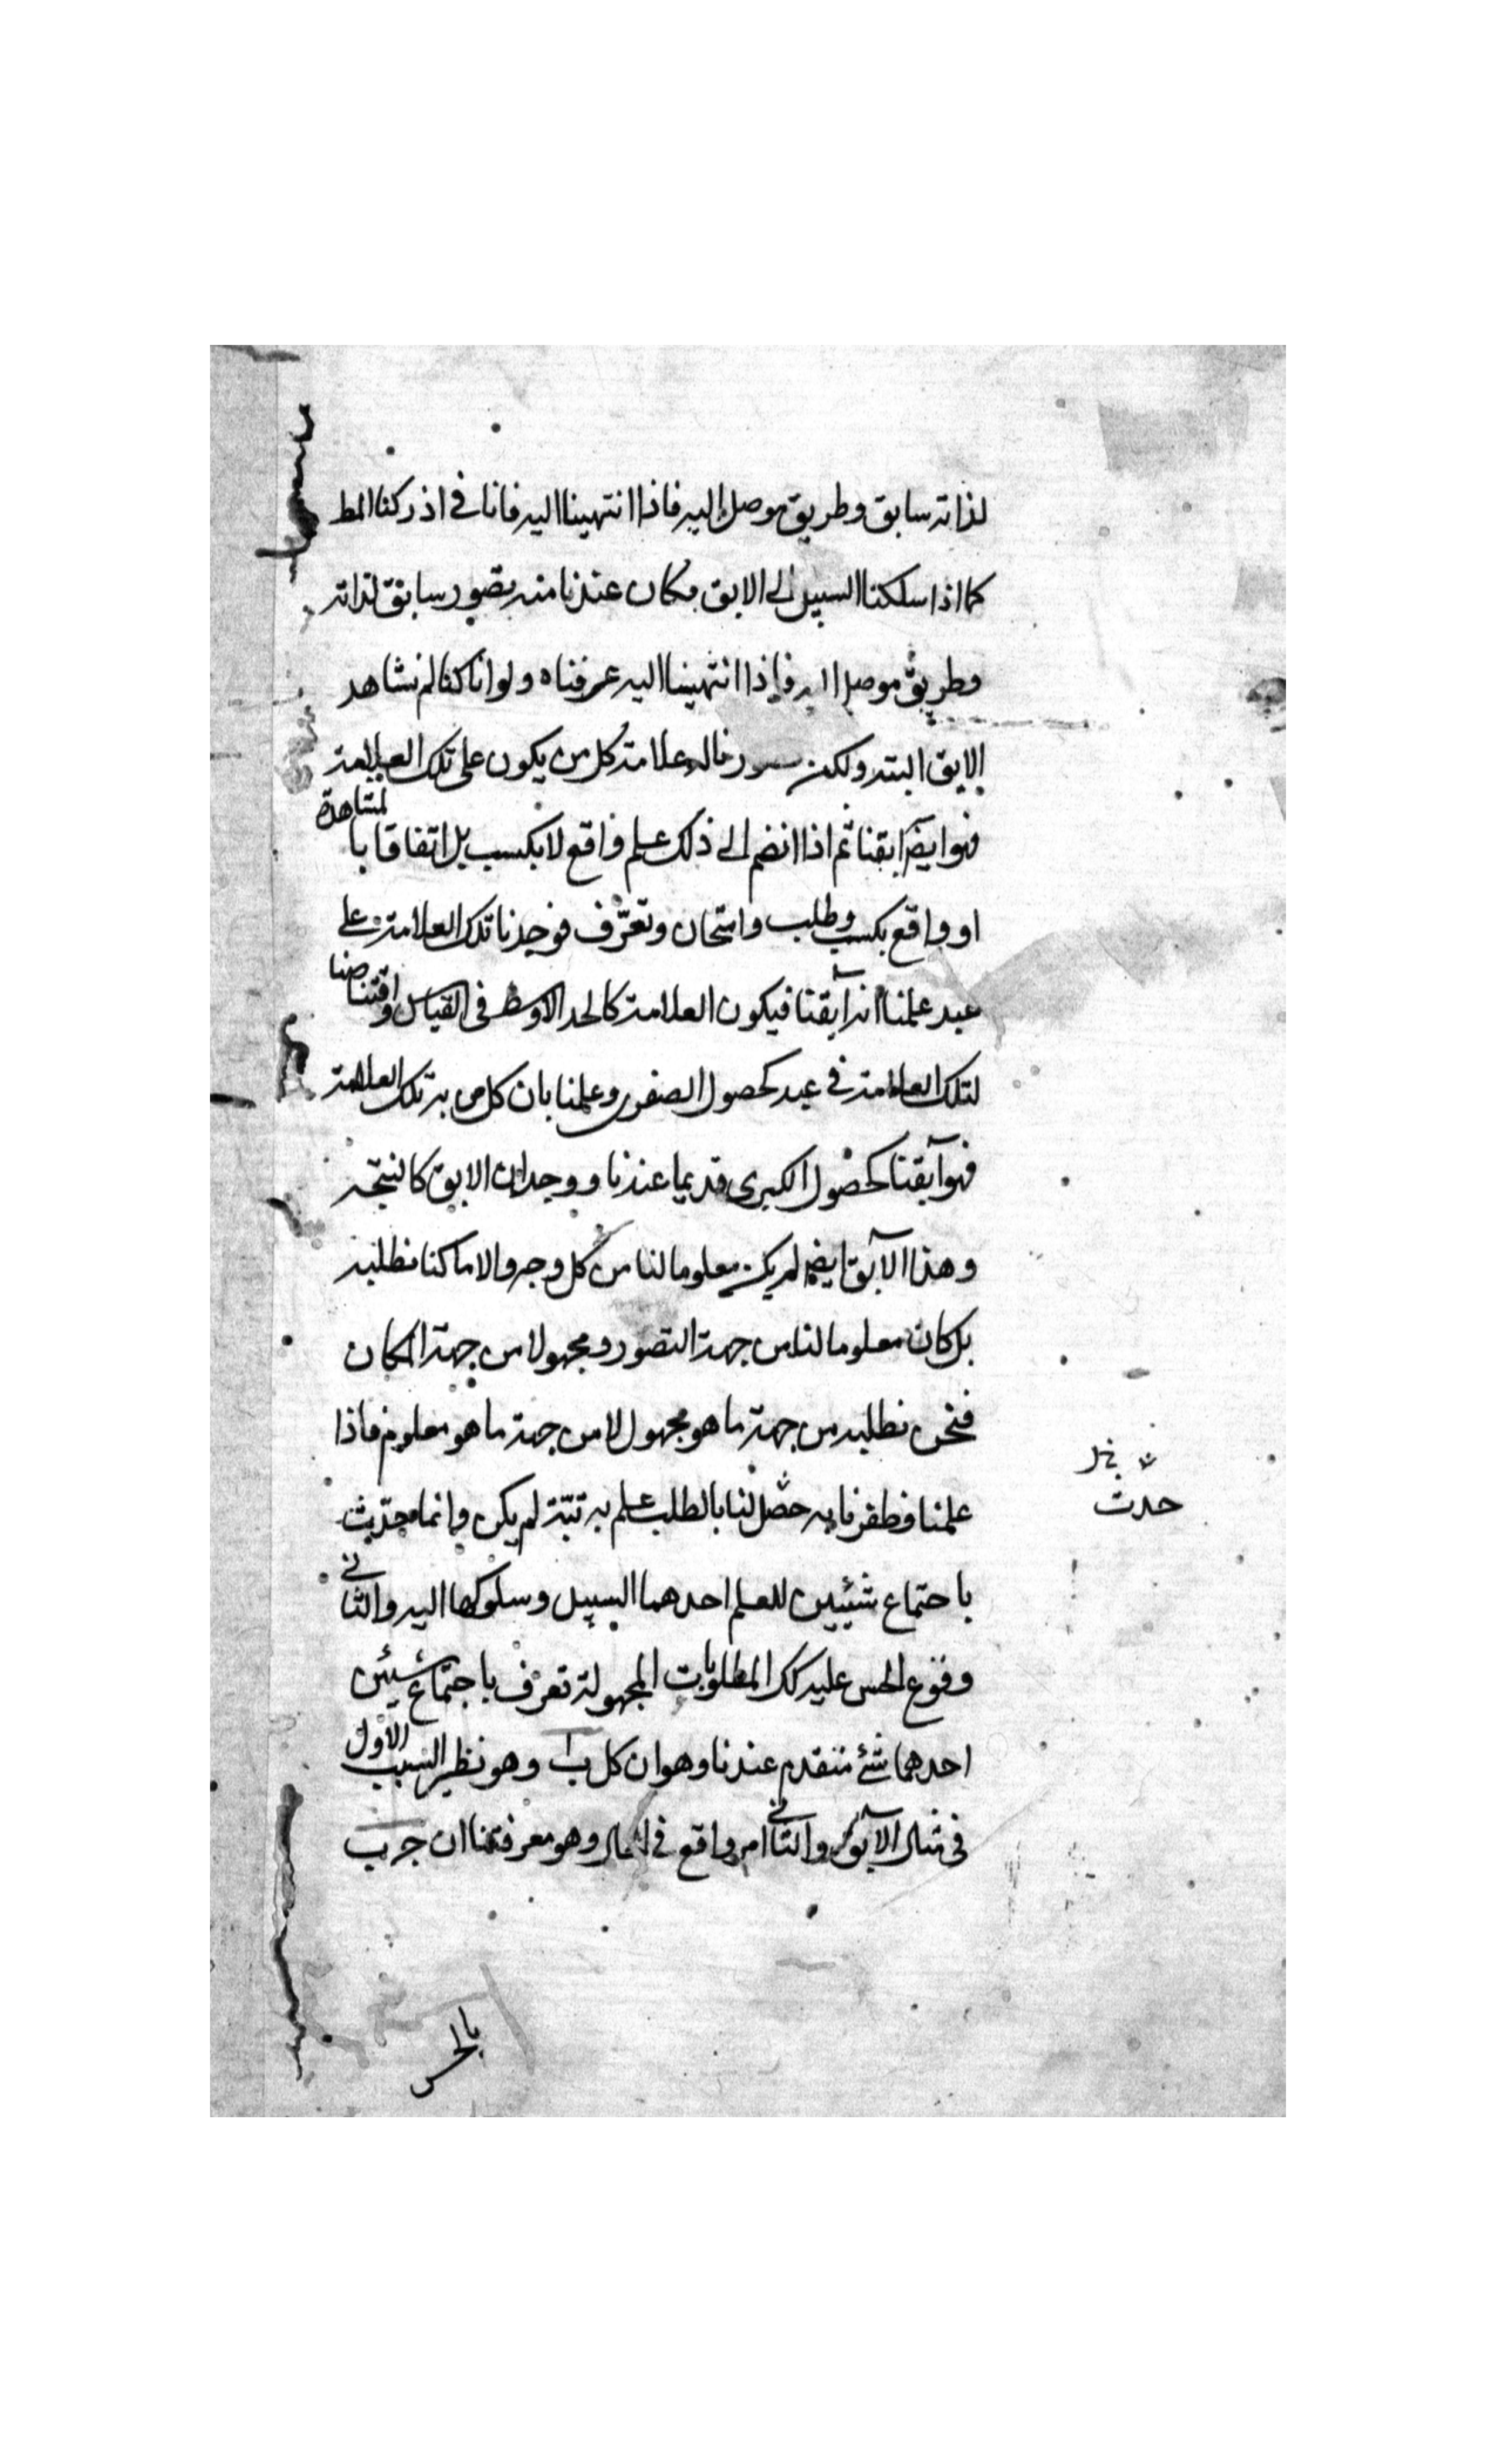 لذاته سابق وطريق موصل اليه فاذا انتهينا اليه فانا في اذركنا المط
كما اذا سلكنا السبيل الى الابق مكان عندنا منه بصور سابق لذاته
وطريق موصل اليه فاذا انتهينا اليه عرفناه ولو انا كنا لم نشاهد
الابق البته ولكن علامة كل من يكون على تلك العلامة
فهو ايضا آبقنا ثم اذا انضم الى ذلك علم واقع لا بكسب بل اتفاقا بالمشاهدة
او واقع بكسب وطلب وامتحان وتعرّف فوجدنا تلك العلامة على
عبد علمنا انه آبقنا فيكون العلامة كالحد الاوسط في القياس واقتناصنا
لتلك العلامة في عبد كحصول الصغرى وعلمنا بان كل من به تلك العلامة
فهو آبقنا كحصول الكبرى قديما عندنا ووجدان الابق كالنتيجه
وهذا الآبق ايضا لم يكن معلوما لنا من كل وجه والا ما كنا نطلبه
بل كان معلوما لنا من جهة التصور ومجهولا من جهة المكان
فنحن نطلبه من جهة ما هو مجهول لا من جهة ما هو معلوم فاذا
علمنا وظفرنا به حصّل لنا بالطلب علم به تبّة لم يكن وانما
حدث
باجتماع شيئين للعلم احدهما السبيل وسلوكها اليه والثاني
وقوع الحس عليه كك المطلوبات المجهولة تعرف باجتماع شيئين
احدهما شئ متقدم عندنا وهو ان كل ب ا وهو نظير السبب الاول
في مثال الآبق والثاني امر واقع في الحال وهو معرفتنا ان ج ب
بالحس